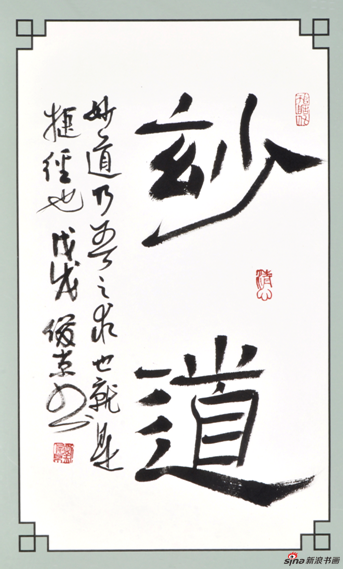 玅道
妙道乃吾之求也就是
捷径也 戊戌 俊京书
sina新浪书画